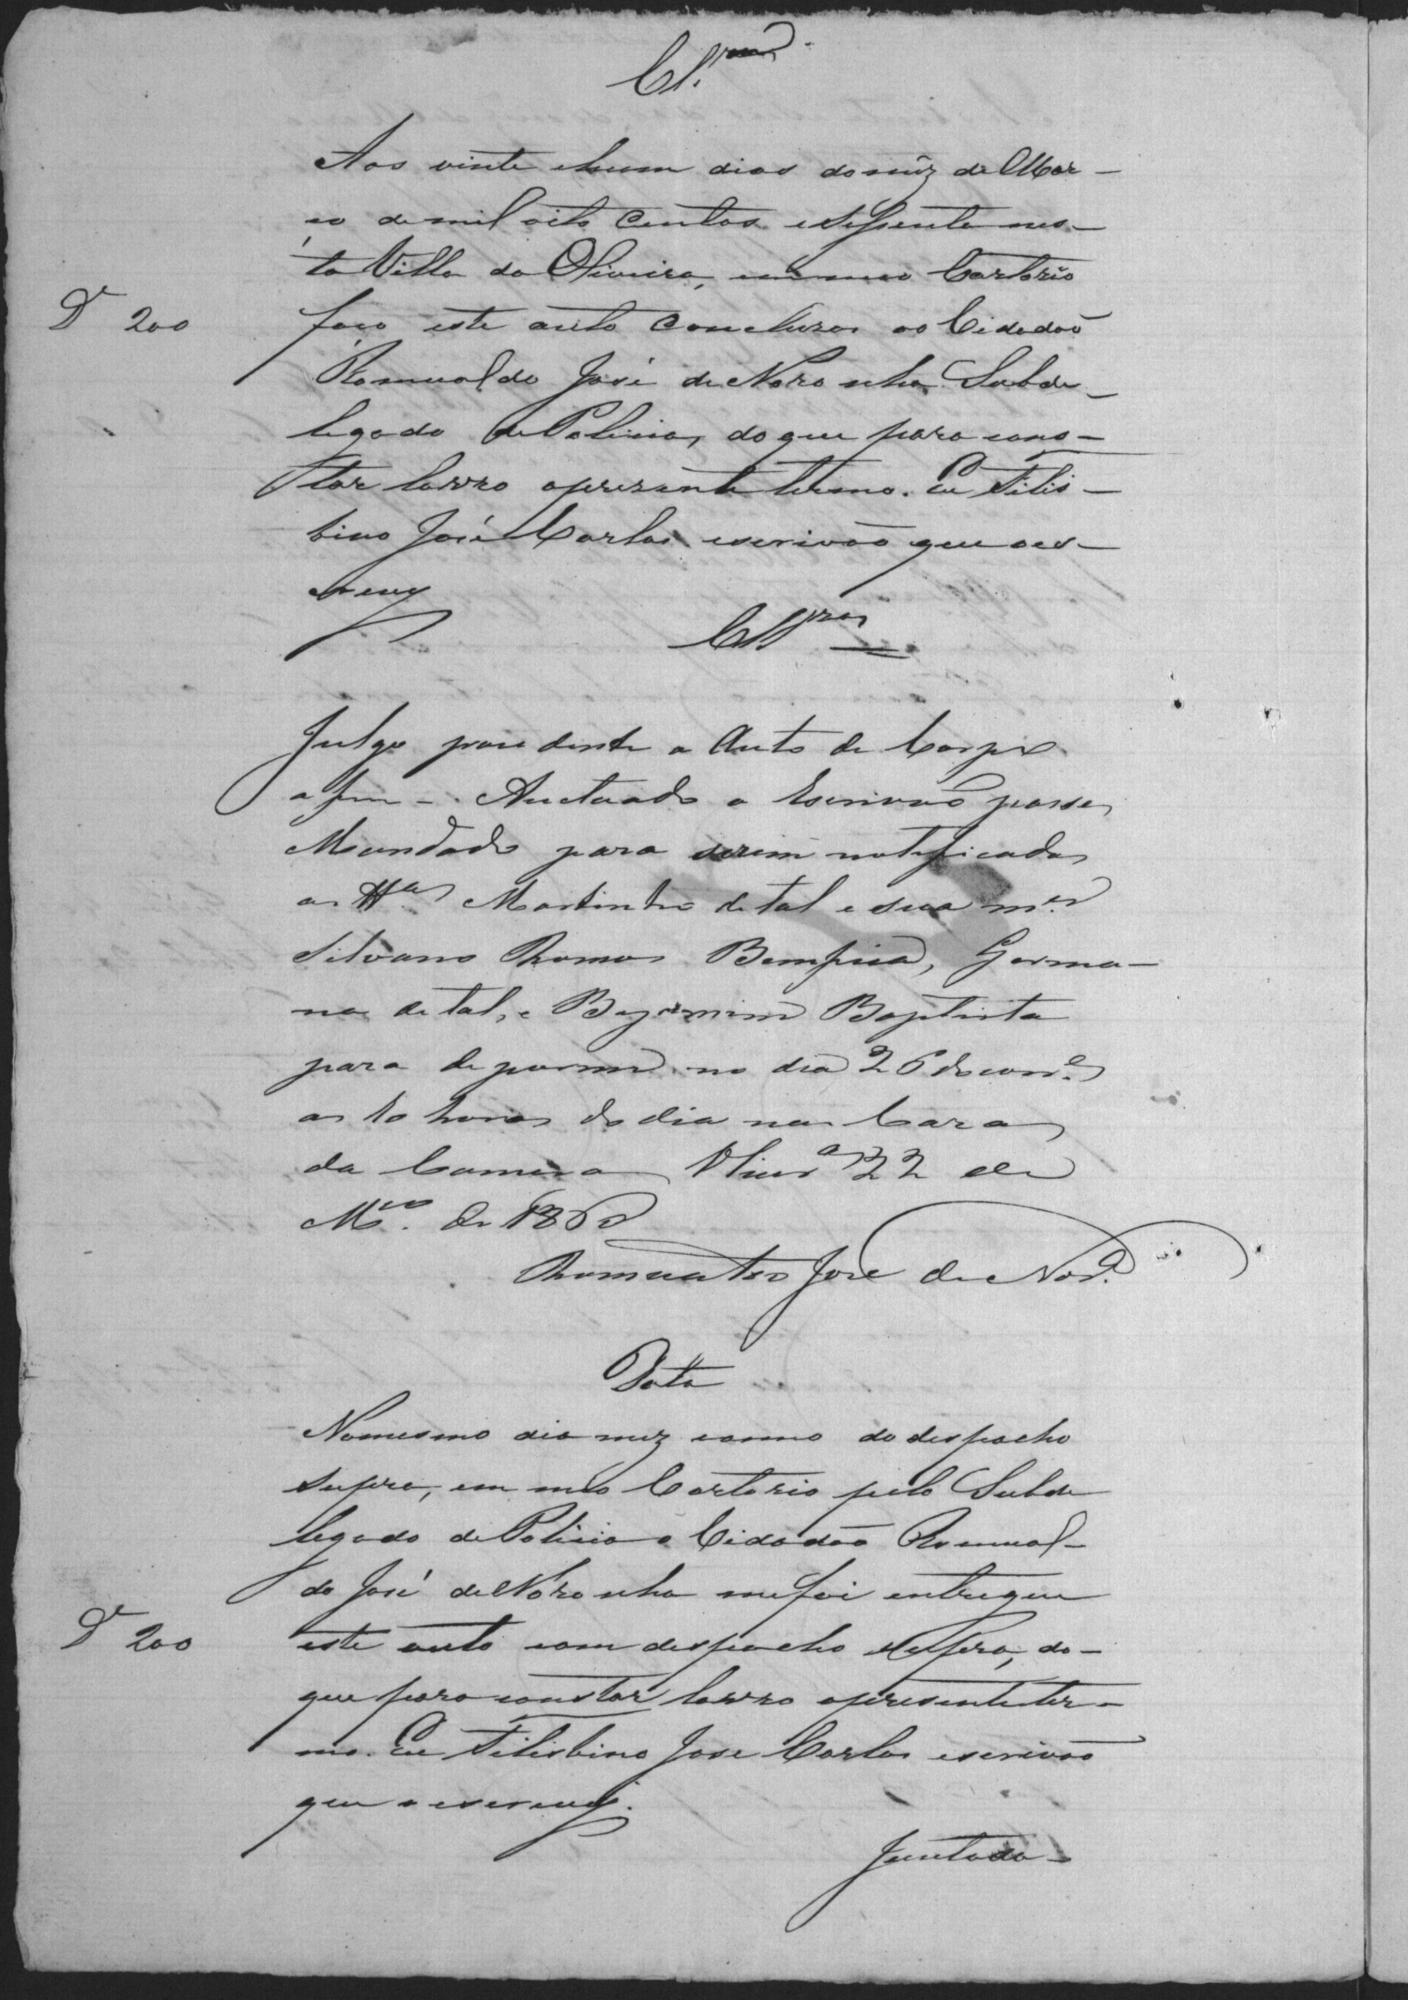 Cl.am
Aos vinte ehum dias do mêz de Mar-
ço de mil oito centos esessenta nes-
ta Villa da Oliveira, em meu Cartorio
Dr 200 faço este auto concluzos ao Cidadão
Romualdo José de Noronha Subde-
legado de Policia, do que para cons-
tar lavro opresente termo. Eu Filis-
bino José Carlos escrivão que oes-
crevy
Cllzos
Julgo procedente o Auto de Corpo
afim -. Auctuado o Escrivão passe
Mandado para serem notificadas
as ttas Martinho de tal e sua mer
Silvano Ramos Bemfica, Germa-
no de tal, e Bejamim Baptista
para deporem no dia 26 do corre
as 10 horas do dia na Caza
da Camera Olivra 22 de
Mco. de 1860
Romualdo José de Nora.
Data
Nomesmo dia mez eanno do despacho
supra, em meo Cartorio pelo Subde
legado de Policia o Cidadão Romual-
do José de Noronha mefoi entregue
Dr 200 este auto com despacho supra, do-
que para constar lavro opresenteter-
mo. Eu Filisbino Jose Carlos escrivão
que o escrevy.
Juntada-